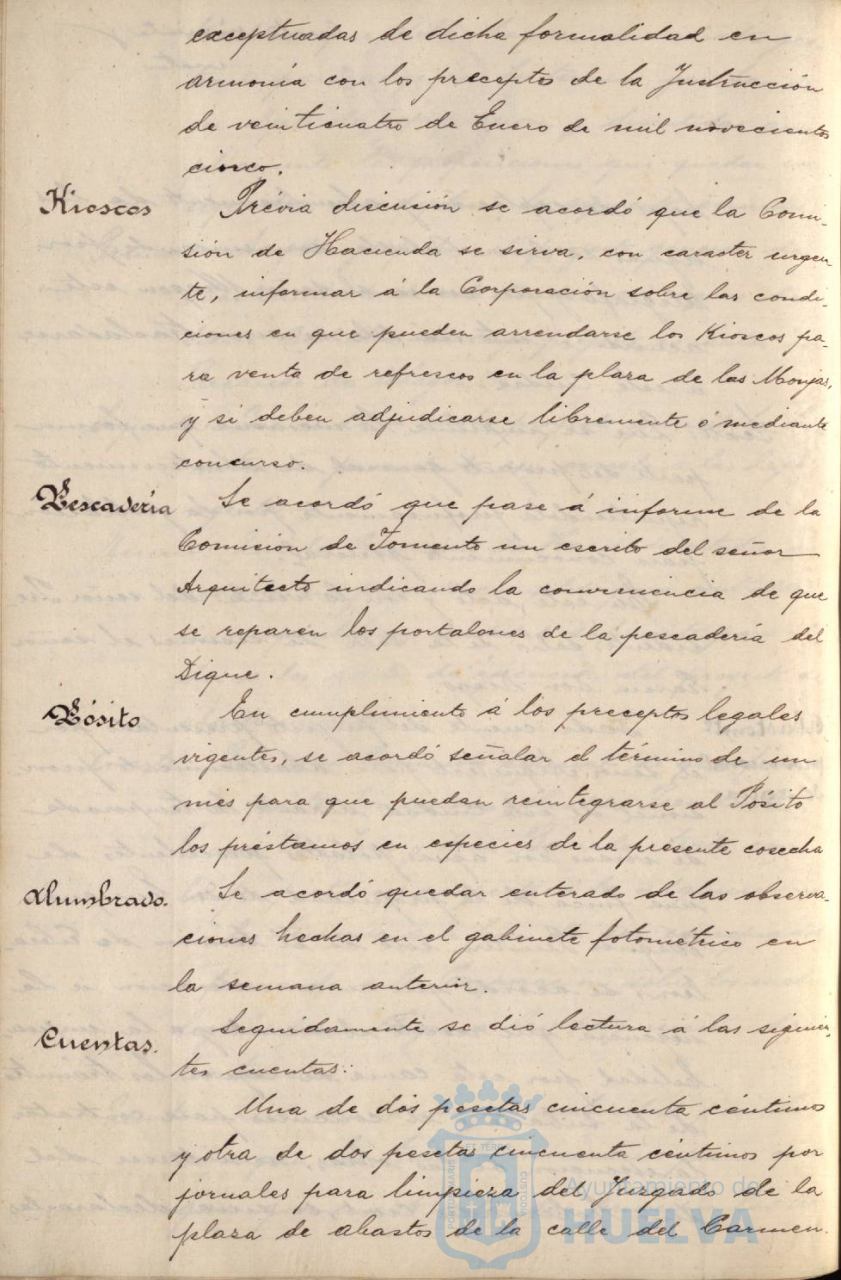 exceptuadas de dicha formalidad en
armonía con los preceptos de la Instrucción
de veinticuatro de Enero de mil novecientos
cinco.
Kioscos
Prévia discusión se acordó que la Comi-
sión de Hacienda se sirva, con caracter urgen-
te, informar á la Corporación sobre las condi-
ciones en que pueden arrendarse los Kioscos pa-
ra venta de refrescos en la plaza de las Monjas,
y si deben adjudicarse libremente ó mediante
concurso.
Pescadería
Se acordó que pase á informe de la
Comision de Fomento un escrito del señor
Arquitecto indicando la conveniencia de que
se reparen los portalones de la pescadería del
Dique.
Pósito
En cumplimiento á los preceptos legales
vigentes, se acordó señalar el término de un
mes para que puedan reintegrarse al Pósito
los préstamos en especies de la presente cosecha
Alumbrado.
Se acordó quedar enterado de las observa-
ciones hechas en el gabinete fotométrico en
la semana anterior.
Cuentas.
Seguidamente se dió lectura á las siguien-
tes cuentas:
Una de dos pesetas cincuenta céntimos
y otra de dos pesetas cincuenta céntimos por
jornales para limpieza del Juzgado de la
plaza de abastos de la calle del Carmen.
Ayuntamiento de
HUELVA